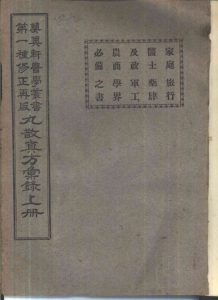 家庭旅行
醫士藥肆
及政軍工
農商學界
必備之書
新醫學叢書
第一種修正再版
丸散真方彙錄上册